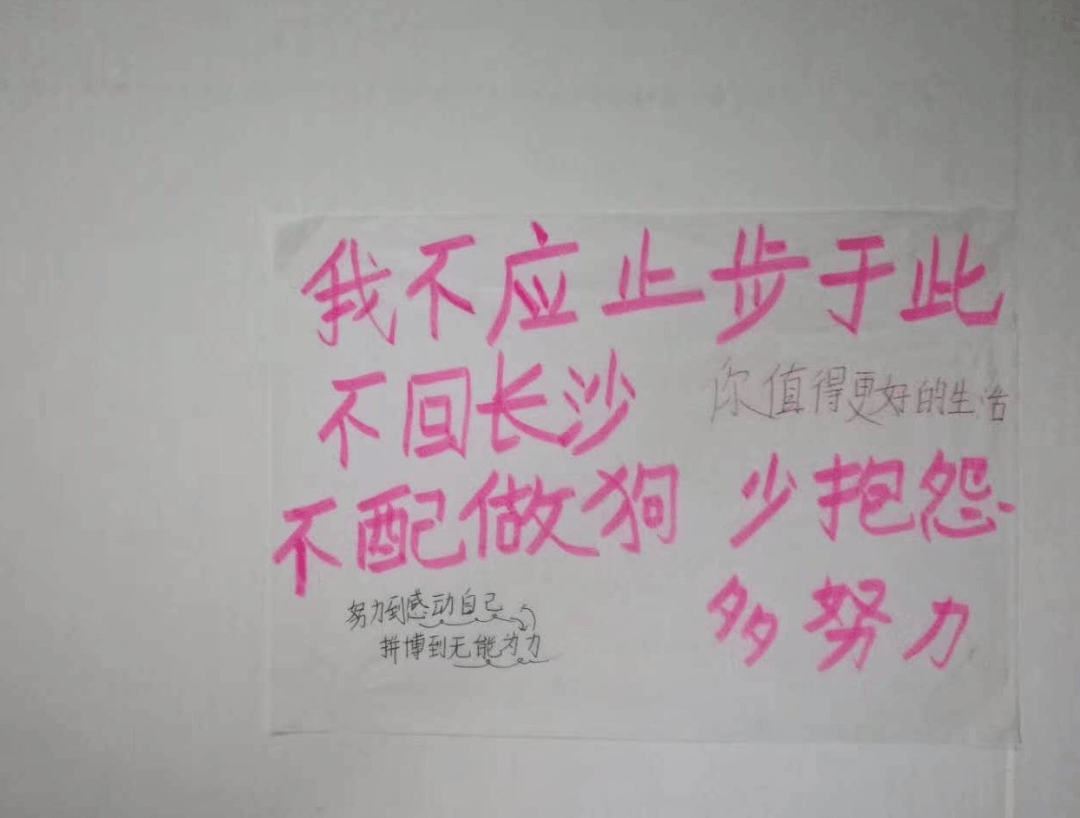 我不应止步于此
不回长沙
你值得更好的生活
不配做狗
少抱怨
多努力
努力到感动自己
拼博到无能为力